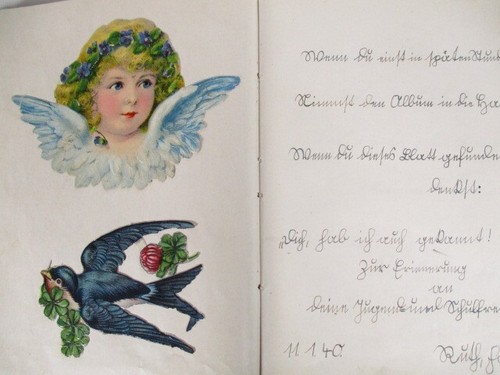 Wenn du einst in späten Stund
Nimmst den Album in die Ha
Wenn du dieses Blatt gefunde
denkst:
„Dich, hab ich auch gekannt!
Zur Erinnerung
an
deine Jugend und Schulfre
11 1 40. Ruth,